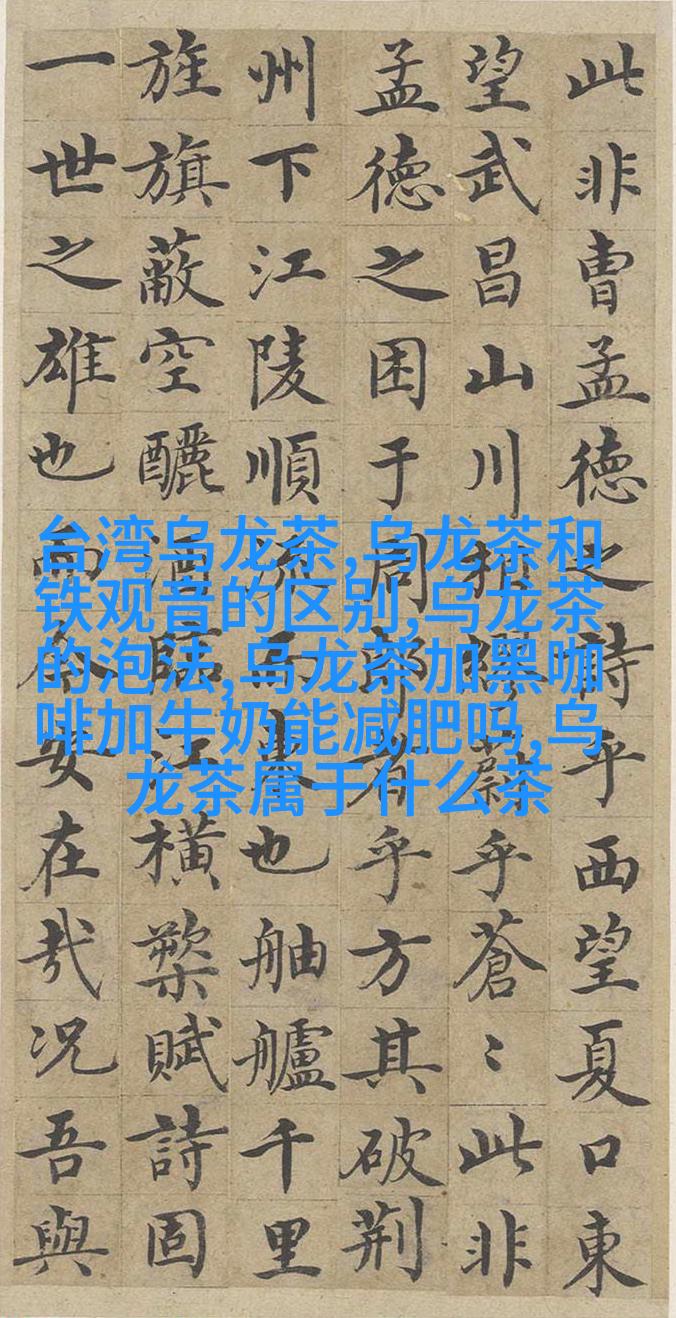 此非曹孟德之詩乎西望夏口東
望武昌山川相繆蔚乎蒼〻此非
孟德之困于周郎者乎方其破荆
州下江陵順流而東也舳艫千里
旌旗蔽空釃酒臨江横槊賦詩固
一世之雄也而今安在哉况吾與
台湾乌龙茶,乌龙茶和
铁观音的区别,乌龙茶
的泡法,乌龙茶加黑咖
啡加牛奶能减肥吗,乌
龙茶属于什么茶